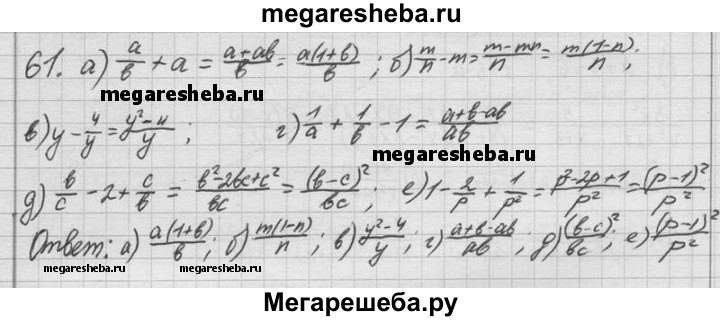 megaresheba.ru
61. а) a/в + a = (a+aв)/в = a(1+в)/в ; б) m/n - m = (m-mn)/n = m(1-n)/n ;
megaresheba.ru
в) y - 4/y = (y²-4)/y ; г) 1/a + 1/в - 1 = (a+в-aв)/aв
megaresheba.ru
д) в/c - 2 + c/в = (в²-2вc+c²)/вc = (в-c)²/вc ; е) 1 - 2/p + 1/p² = (p²-2p+1)/p² = (p-1)²/p²
Ответ: а) a(1+в)/в ; б) m(1-n)/n ; в) (y²-4)/y ; г) (a+в-aв)/aв ; д) (в-c)²/вc ; е) (p-1)²/p²
megaresheba.ru megaresheba.ru
Мегарешеба.ру